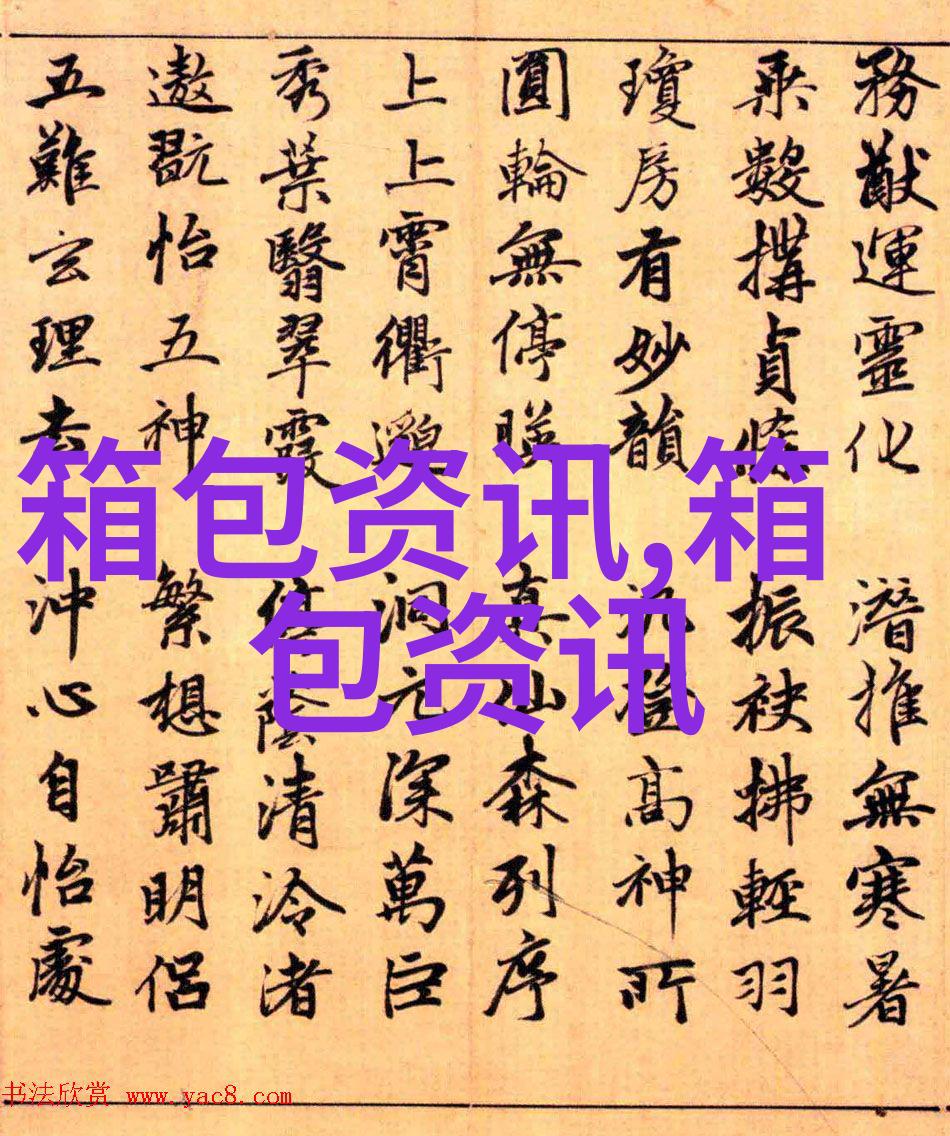 務猷運靈化 潜推無寒暑
乘數搆貞 振袂拂輕羽
瓊房有妙韻 登高神所
圓輪無停暎 真仙森列序
上上霄衢邈 洞元深萬
秀葉翳翠霞 蔭清泠渚
遨翫怡五神 繁想明侣
五難玄理去 沖心自怡處
箱包资讯,箱
包资讯
书法欣赏 www.yac8.com